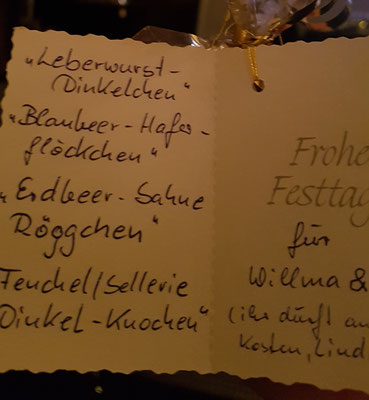 "Leberwurst-
Dinkelchen"
"Blaubeer-Hafer-
flöckchen"
"Erdbeer-Sahne
Röggchen"
Fenchel/Sellerie
Dinkel-Knochen"
Frohe
Festtag
für
Willma &
(ihr dürft au
kosten, Lind